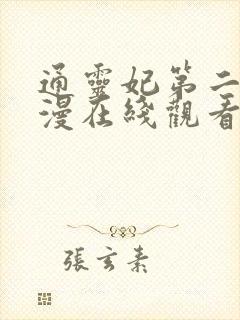 通靈妃第二
漫在綫觀看
張玄素